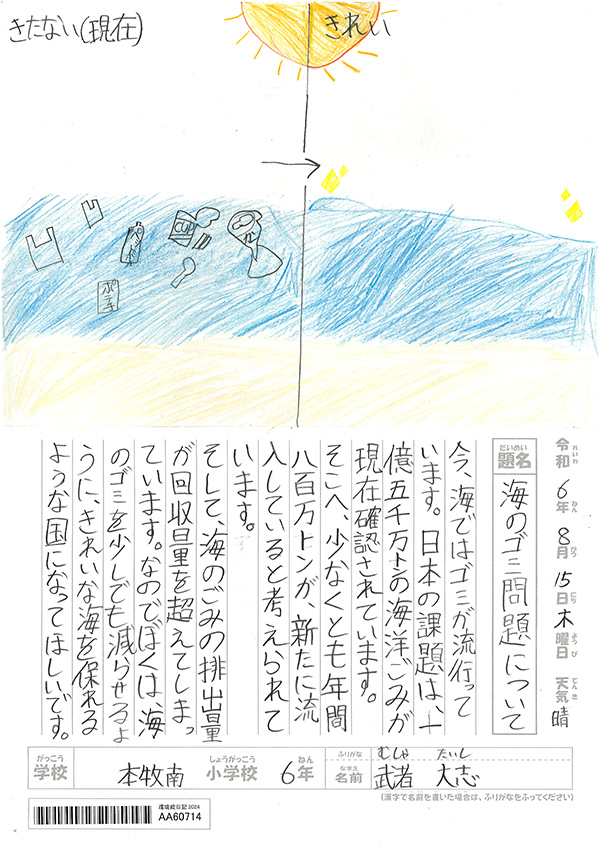 きたない(現在)
きれい
CUP
ポテチ
令和6年8月15日木曜日 天気 晴
れいわ ねん がつ にち ようび てんき
だいめい
題名
海のゴミ問題について
今、海ではゴミが流行って
います。日本の課題は、一
億五千万トンの海洋ごみが
現在確認されています。
そこへ、少なくとも年間
八百万トンが、新たに流
入していると考えられて
います。
そして、海のごみの排出量
が回収量を超えてしまっ
ています。なのでぼくは、海
のゴミを少しでも減らせるよ
うに、きれいな海を保れる
ような国になってほしいです。
がっこう しょうがっこう ねん
学校 本牧南 小学校 6年
ふりがな むしゃ たいし
なまえ
名前 武者 大志
(漢字で名前を書いた場合は、ふりがなをふってください)
環境絵日記2024
AA60714